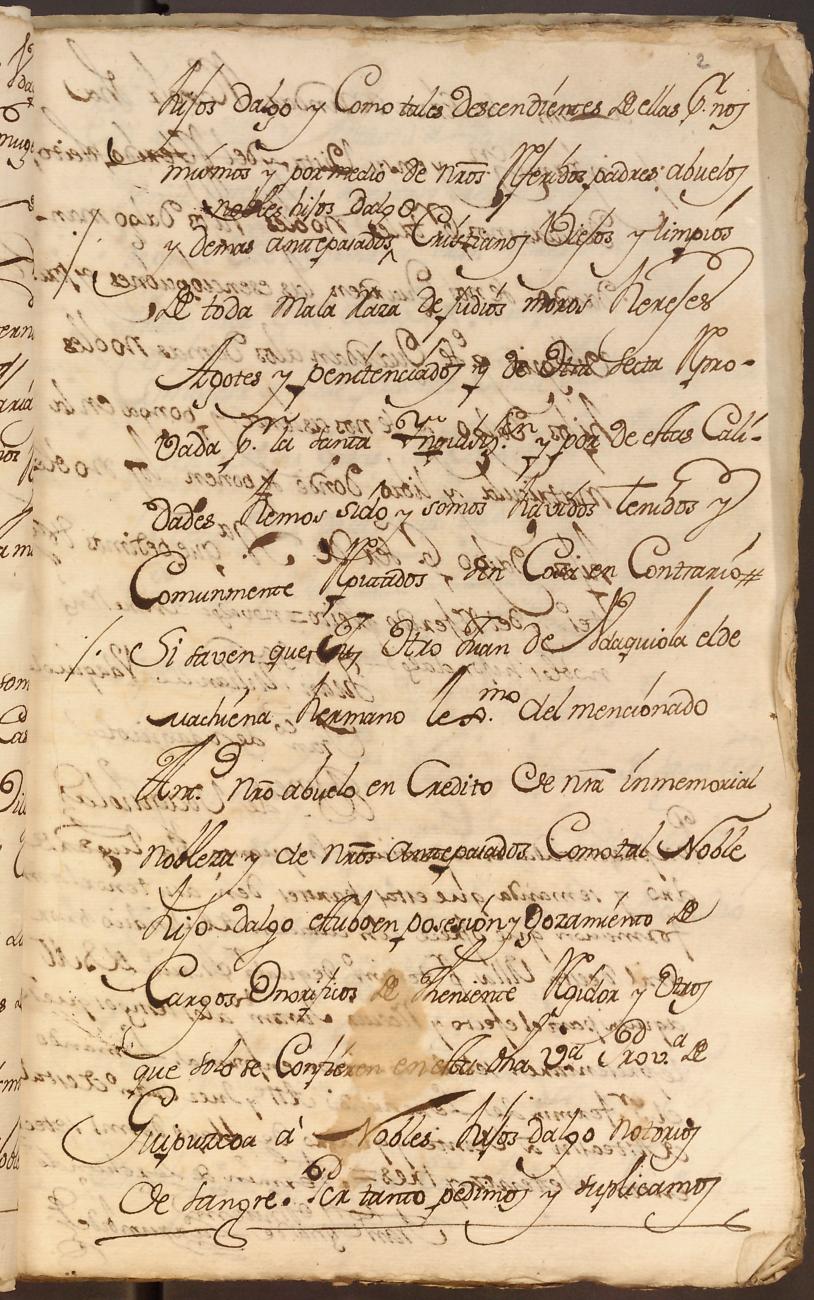 2
hijos dalgo y Como tales descendientes de ellas p.r nos
mismos y por medio de nros Referidos padres abuelos
nobles hijos Dalgo
y demas antepasados Cristianos Viejos y limpios
de toda mala Raza de judios moros herejes
Agotes y penitenciados y de otra Secta Repro-
vada p.r la santa Inquisiz.on y por de estas Cali-
dades hemos sido y somos havidos tenidos y
Comunmente Reputados sin Cosa en Contrario #
Si saven que el Otro Juan de el de
hermano lex.mo del mencionado
nro abuelo en Credito de nra inmemorial
nobleza y de nros antepasados Como tal Noble
hijo dalgo estubo en posesion y Gozamiento de
Cargos Onorificos de Theniente Regidor y Otros
que solo se Confieren en esta dha V.a Prov.a de
Guipuzcoa à Nobles hijos dalgo notorios
de sangre. Por tanto pedimos y suplicamos